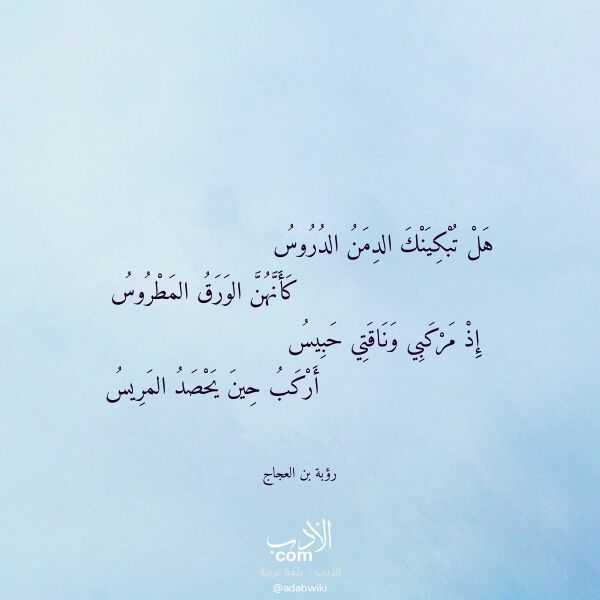 هَلْ تُبْكِيَنْكَ الدِمَنُ الدُرُوسُ
كَأَنَّهُنَّ الوَرَقُ المَطْرُوسُ
إِذْ مَرْكَبِي وَنَاقَتِي حَبِيسُ
أَرْكَبُ حِينَ يَحْصَدُ المَرِيسُ
رؤبة بن العجاج
الأدب
com
الأدب .. بلغة عربية
@adabwiki